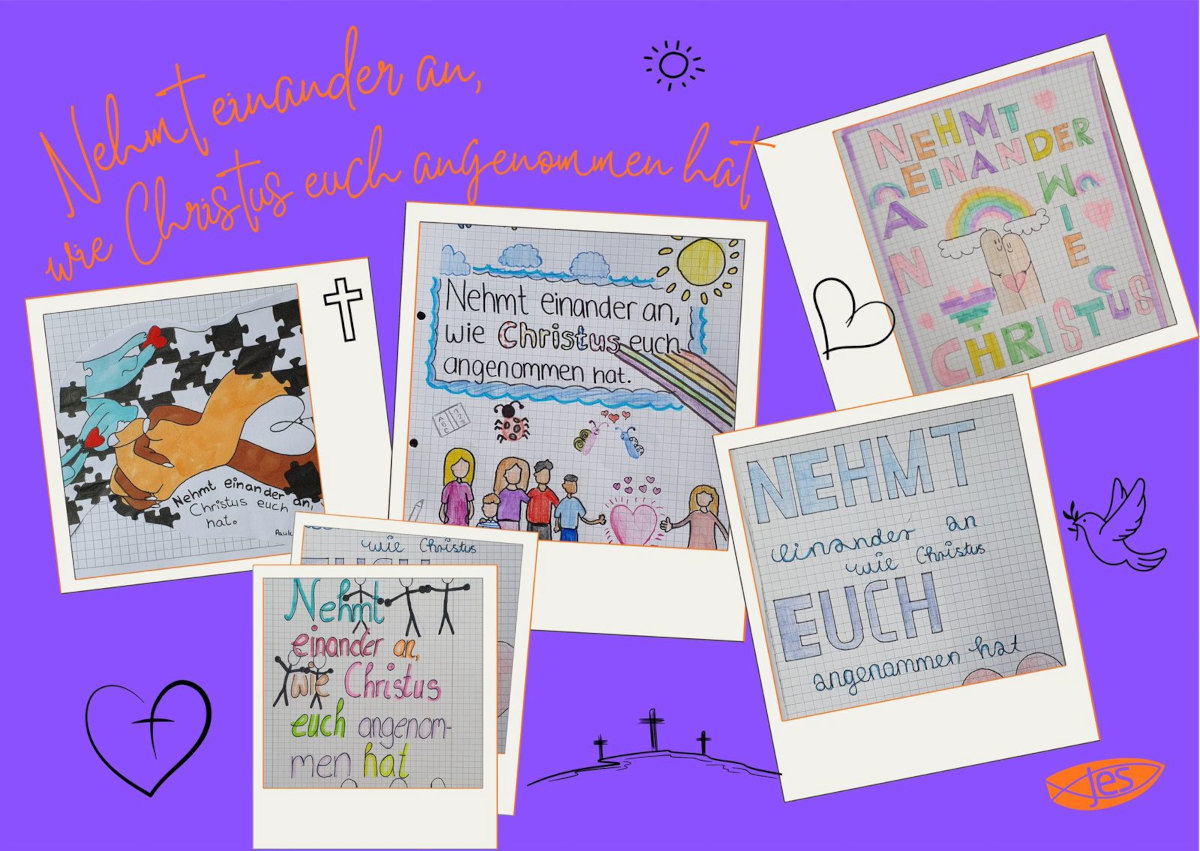 Nehmt einander an,
wie Christus euch angenommen hat
NEHMT
EINANDER
AN
WIE
CHRISTUS
Nehmt einander an,
wie Christus euch
angenommen hat.
Nehmt einander an,
Christus euch
hat.
NEHMT
einander an
wie Christus
EUCH
angenommen hat
wie Christus
Nehmt
einander an,
wie Christus
euch angenom-
men hat
jes